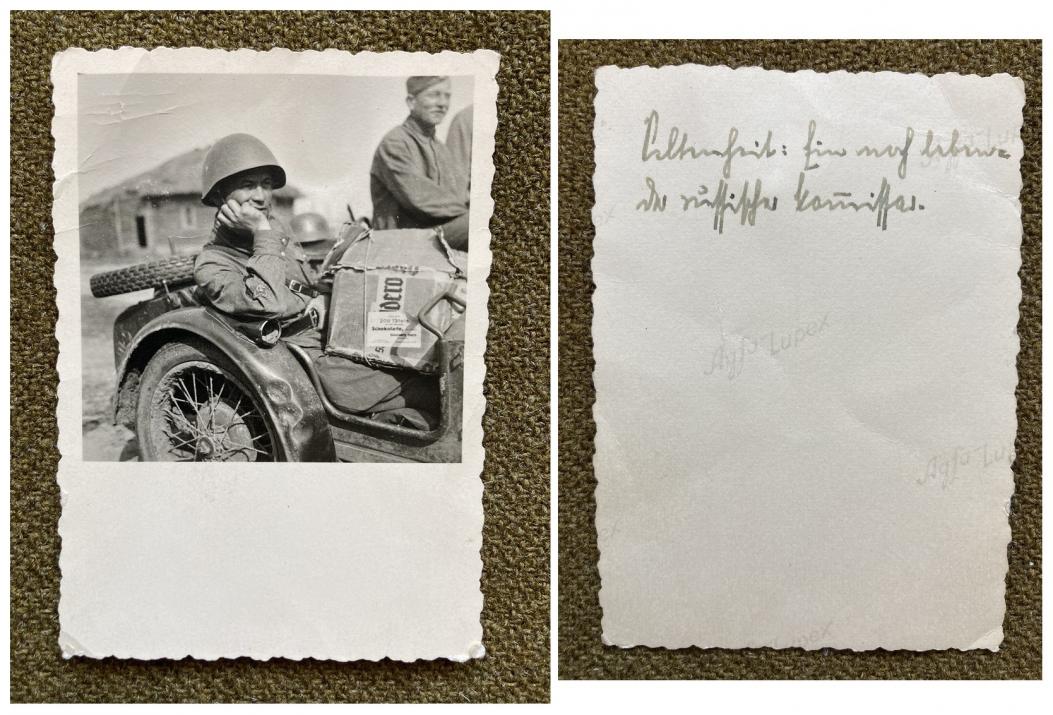 dero
200 Tafeln
Schokolade,
Seltenheit: Ein noch leben-
der russischer Kommissar.
Agfa-Lupex
Agfa-Lupex